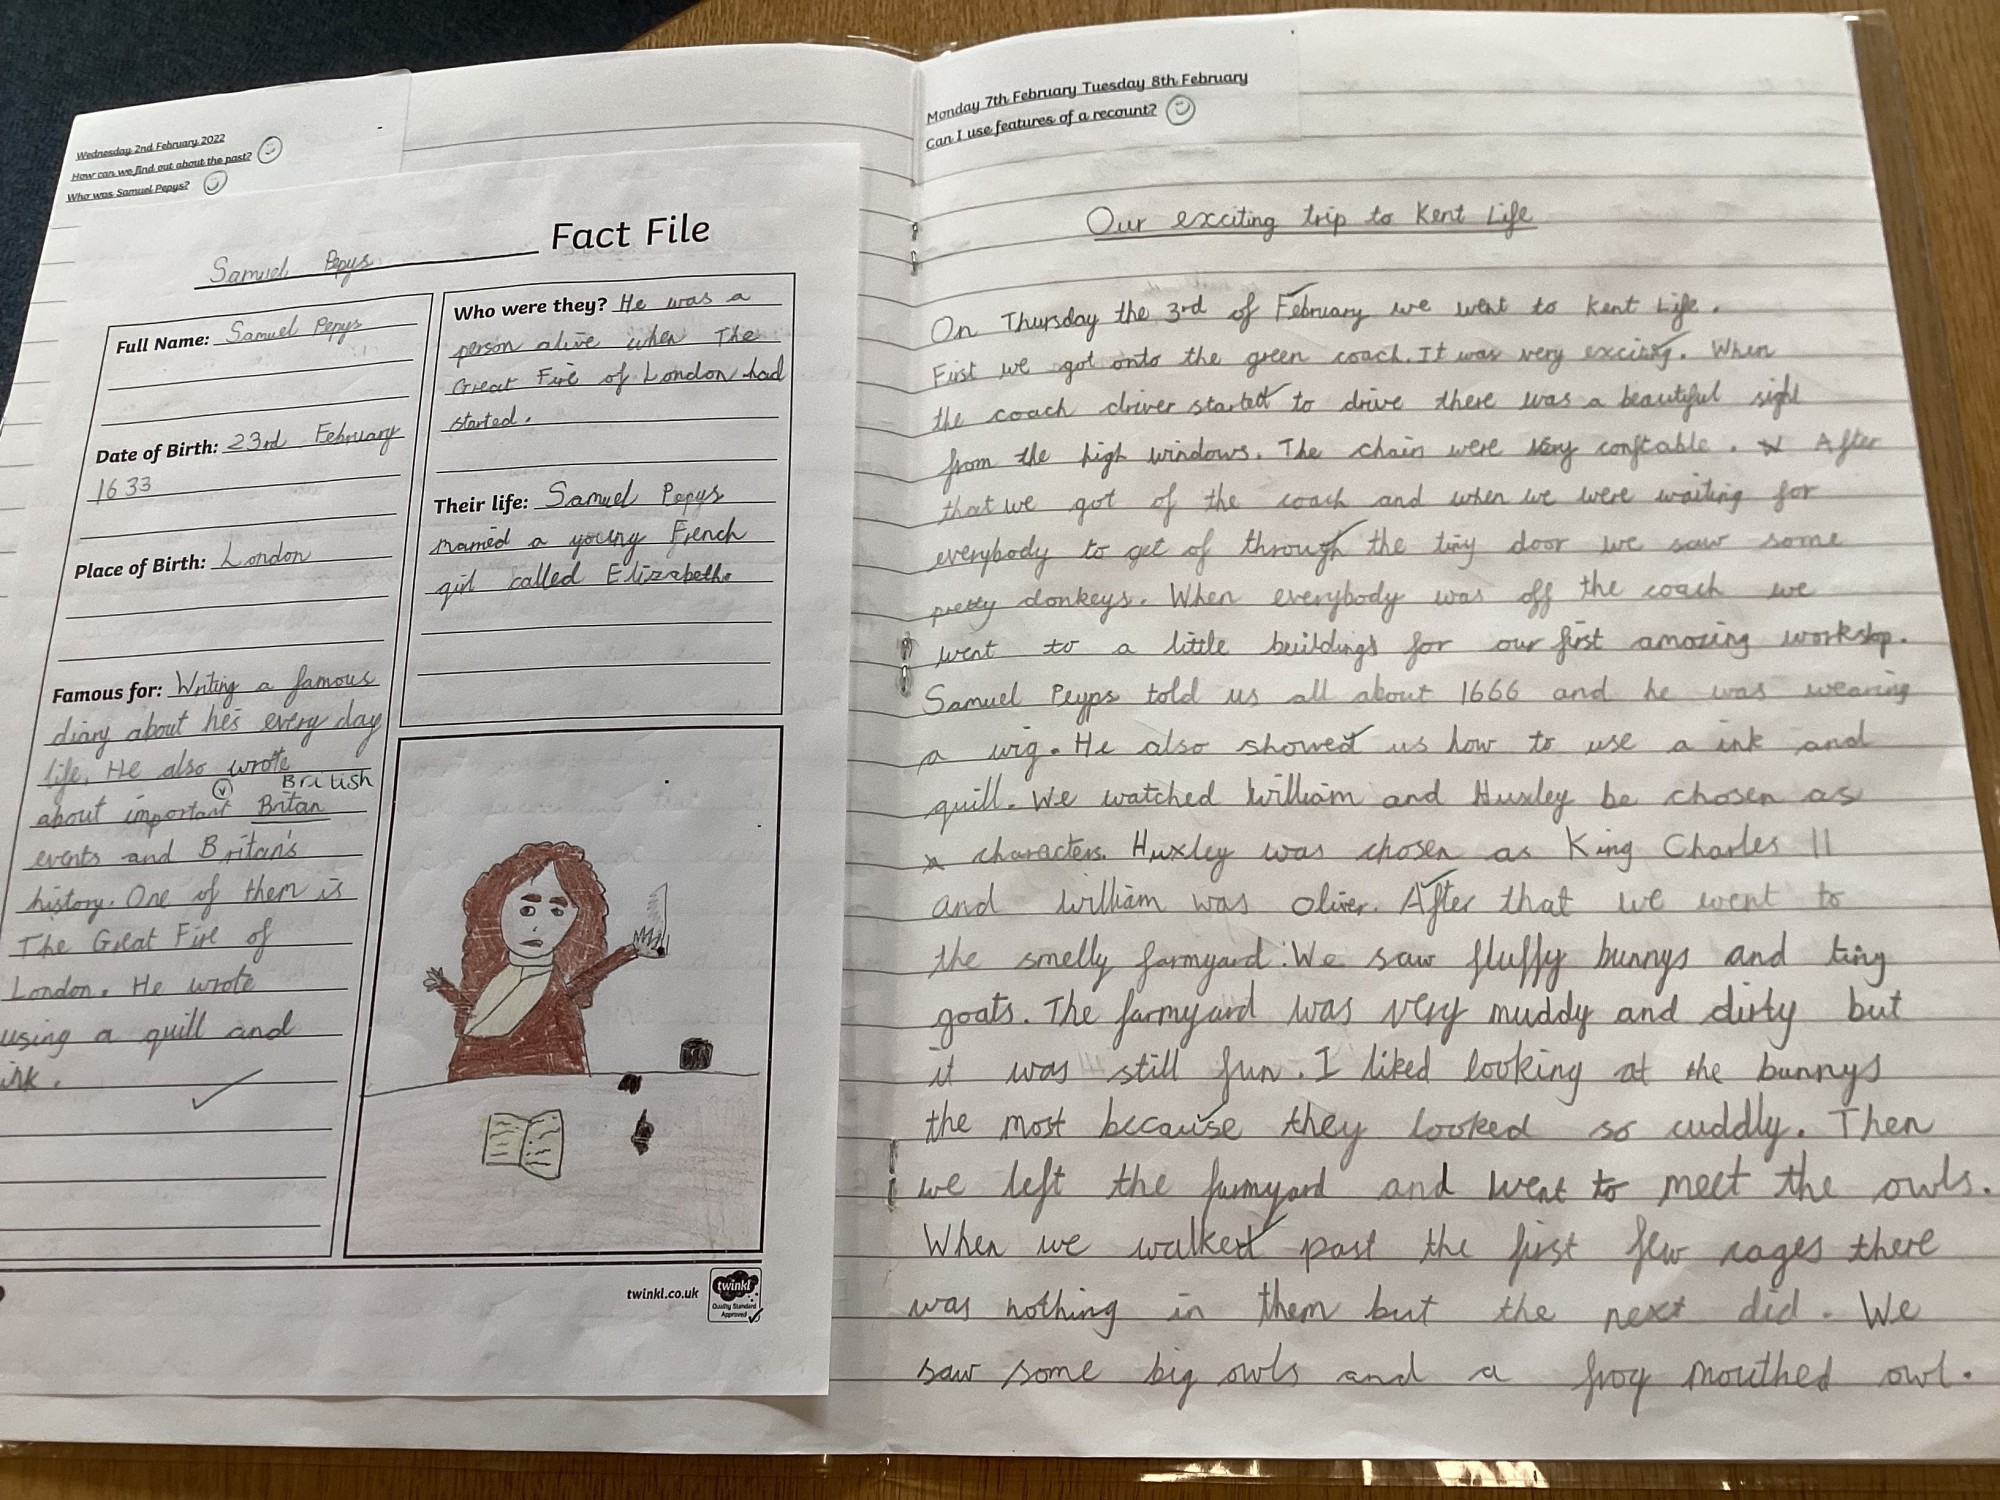 Wednesday 2nd February 2022
How can we find out about the past?
Who was Samuel Pepys?
Samuel Pepys Fact File
Full Name: Samuel Pepys
Date of Birth: 23rd February
1633
Place of Birth: London
Famous for: Writing a famous
diary about he's every day
life. He also wrote
British
about important Britan
events and Britan's
history. One of them is
The Great Fire of
London. He wrote
using a quill and
ink.
Who were they? He was a
person alive when The
Great Fire of London had
started.
Their life: Samuel Pepys
married a young French
girl called Elizabeth.
twinkl.co.uk
twinkl
Quality Standard
Approved
Monday 7th February Tuesday 8th February
Can I use features of a recount?
Our exciting trip to Kent Life
On Thursday the 3rd of February we went to Kent Life.
First we got onto the green coach. It was very exciting. When
the coach driver started to drive there was a beautiful sight
from the high windows. The chairs were very conftable. After
that we got of the coach and when we were waiting for
everybody to get of through the tiny door we saw some
pretty donkeys. When everybody was off the coach we
went to a little buildings for our first amazing workshop.
Samuel Peyps told us all about 1666 and he was wearing
a wig. He also showed us how to use a ink and
quill. We watched William and Huxley be chosen as
characters. Huxley was chosen as King Charles II
and William was Oliver. After that we went to
the smelly farmyard. We saw fluffy bunnys and tiny
goats. The farmyard was very muddy and dirty but
it was still fun. I liked looking at the bunnys
the most because they looked so cuddly. Then
we left the farmyard and went to meet the owls.
When we walked past the first few cages there
was nothing in them but the next did. We
saw some big owls and a frog mouthed owl.